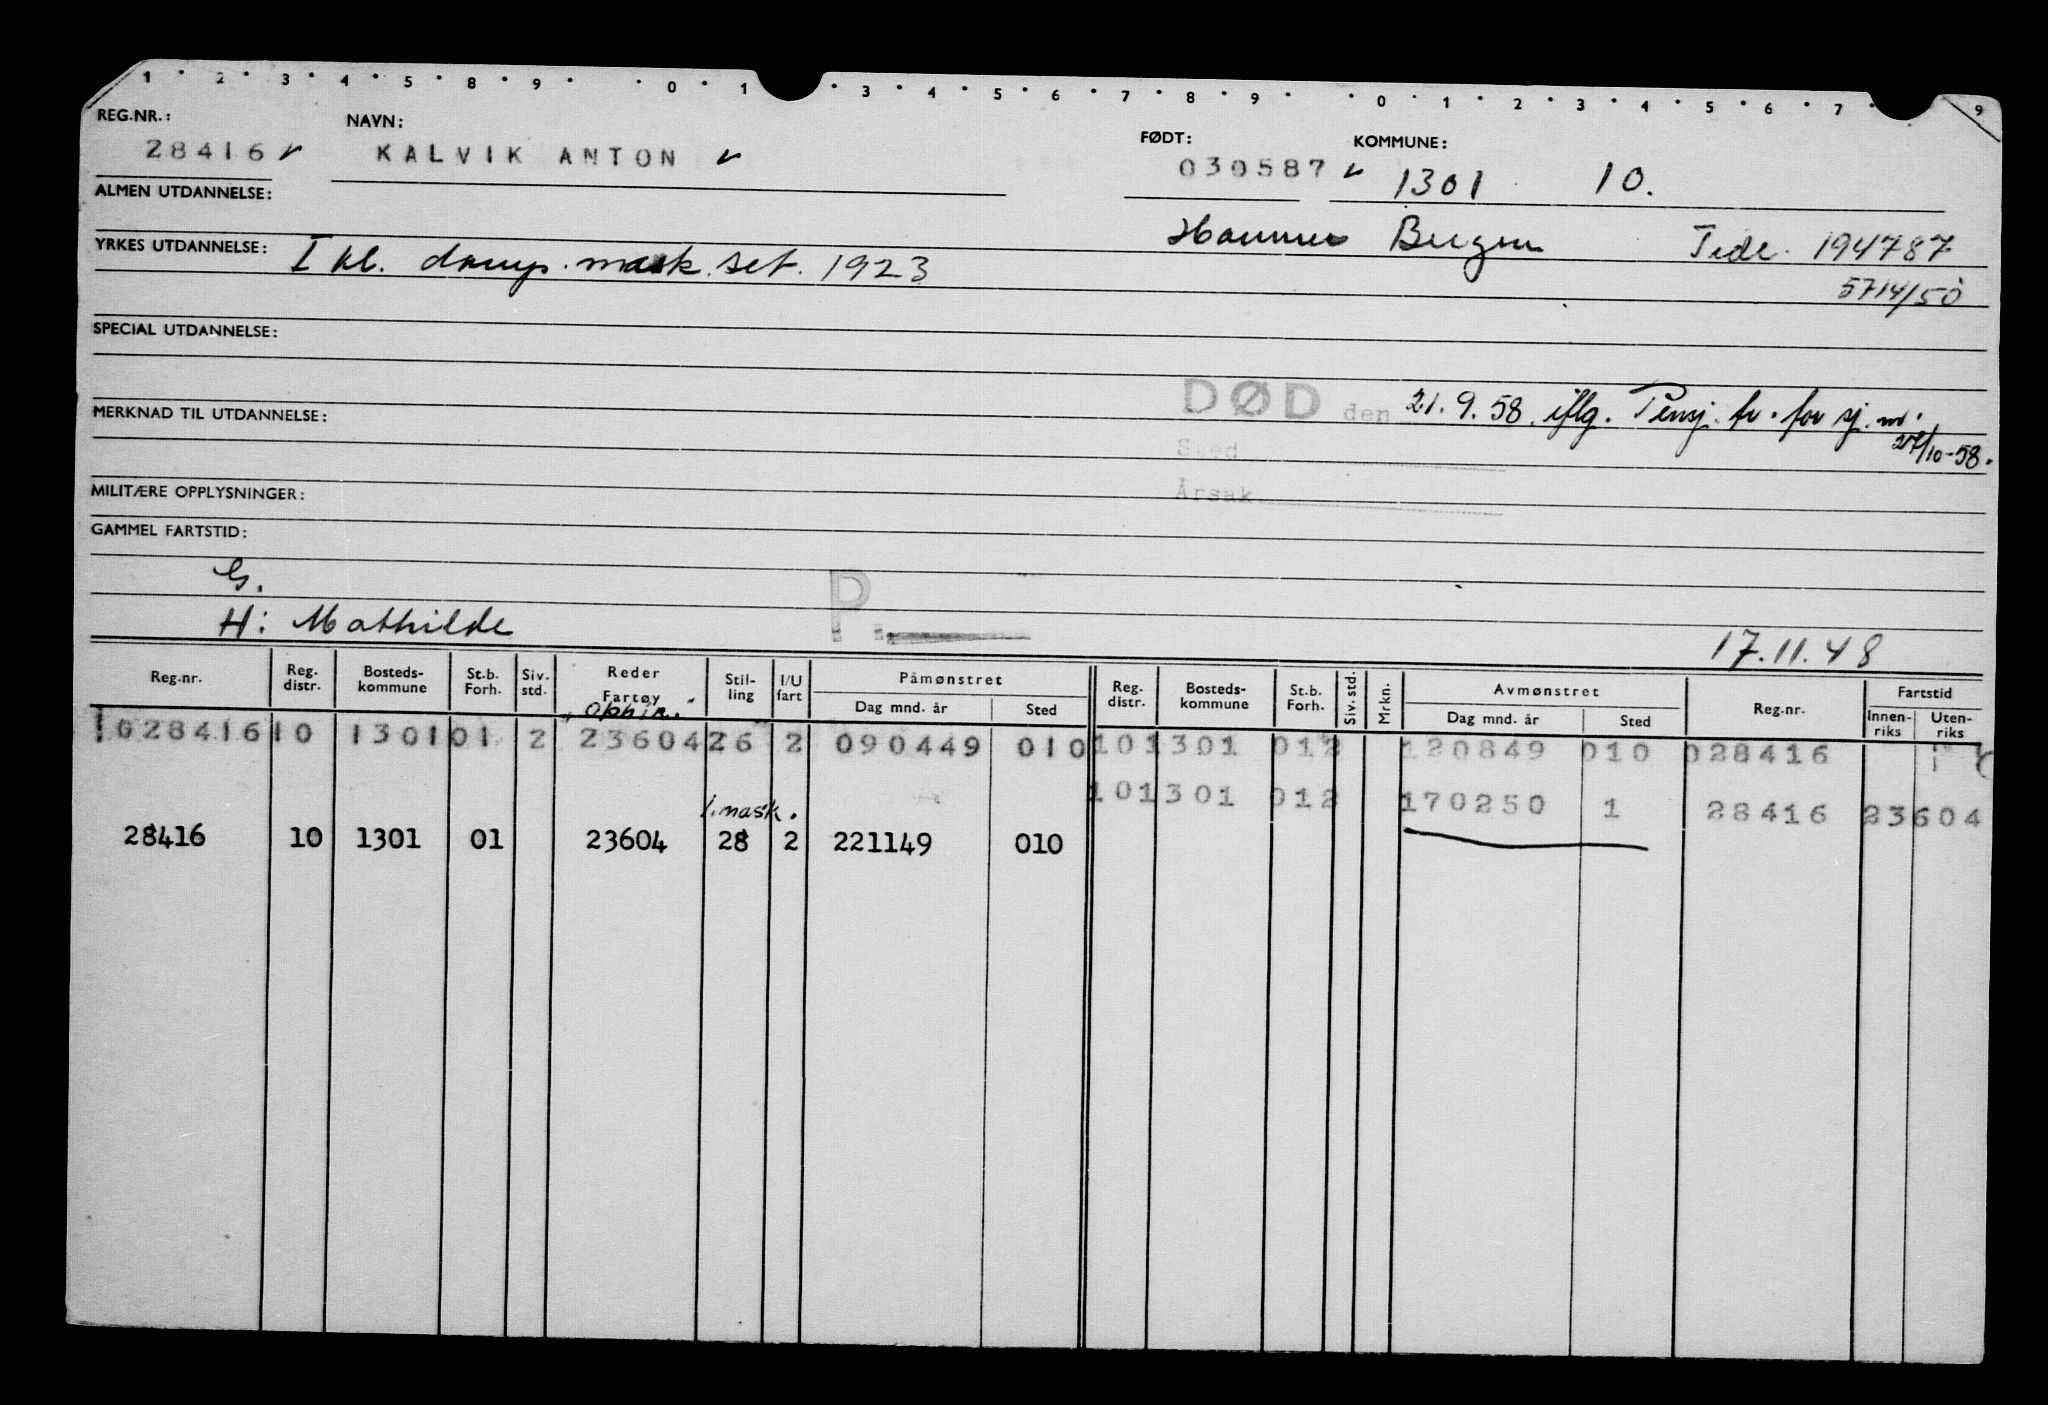 1 2 3 4 5 8 9 0 1 3 4 5 6 7 8 9 0 1 2 3 4 5 6 7 9
REG.NR.: NAVN: FØDT: KOMMUNE:
28416 KALVIK ANTON 030587 1301 10.
ALMEN UTDANNELSE:
Bergen 194787
YRKES UTDANNELSE: I kl. damp. mask. set. 1923
5714/50
SPECIAL UTDANNELSE:
DØD den 21.9.58. iflg. Pensj. tr. for sj. m.
MERKNAD TIL UTDANNELSE:
Sted /10-58.
MILITÆRE OPPLYSNINGER: Årsak
GAMMEL FARTSTID:
G.
P.
H: Mathilde
17.11.48
Reg.nr. Reg. distr. Bosteds- kommune St.b. Forh. Siv. std. Reder Fartøy Stil- ling I/U fart Påmønstret Dag mnd. år Sted Reg. distr. Bosteds- kommune St.b. Forh. Siv. std. Mrkn. Avmønstret Dag mnd. år Sted Reg.nr. Fartstid Innen- riks Uten- riks
"Ophir."
028416 10 1301 01 2 23604 26 2 090449 010 10 1301 012 120849 010 028416
10 1301 012 170250 1 28416 23604
1. mask.
28416 10 1301 01 23604 28 2 221149 010